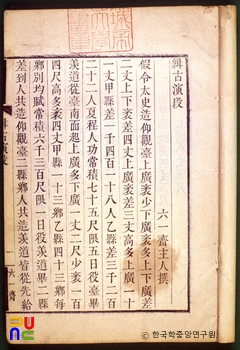 輯古演段
六一齋主人撰
假令太史造仰觀臺上廣袤少下廣袤多上下廣差
二丈上下袤差四丈上廣袤差三丈高多上廣一十
一丈甲縣差一千四百一十八人乙縣差三千二百
二十二人夏程人功常積七十五尺限五日役臺畢
羨道從臺南面起上廣多下廣一丈二尺少袤一百
四尺高多袤四丈甲縣一十三鄉乙縣四十三鄉每
鄉別均賦常積六千三百尺限一日役羨道畢二縣
差到人共造仰觀臺二縣鄉人共造羨道皆從先給
輯古演段
六一齋
한국학중앙연구원